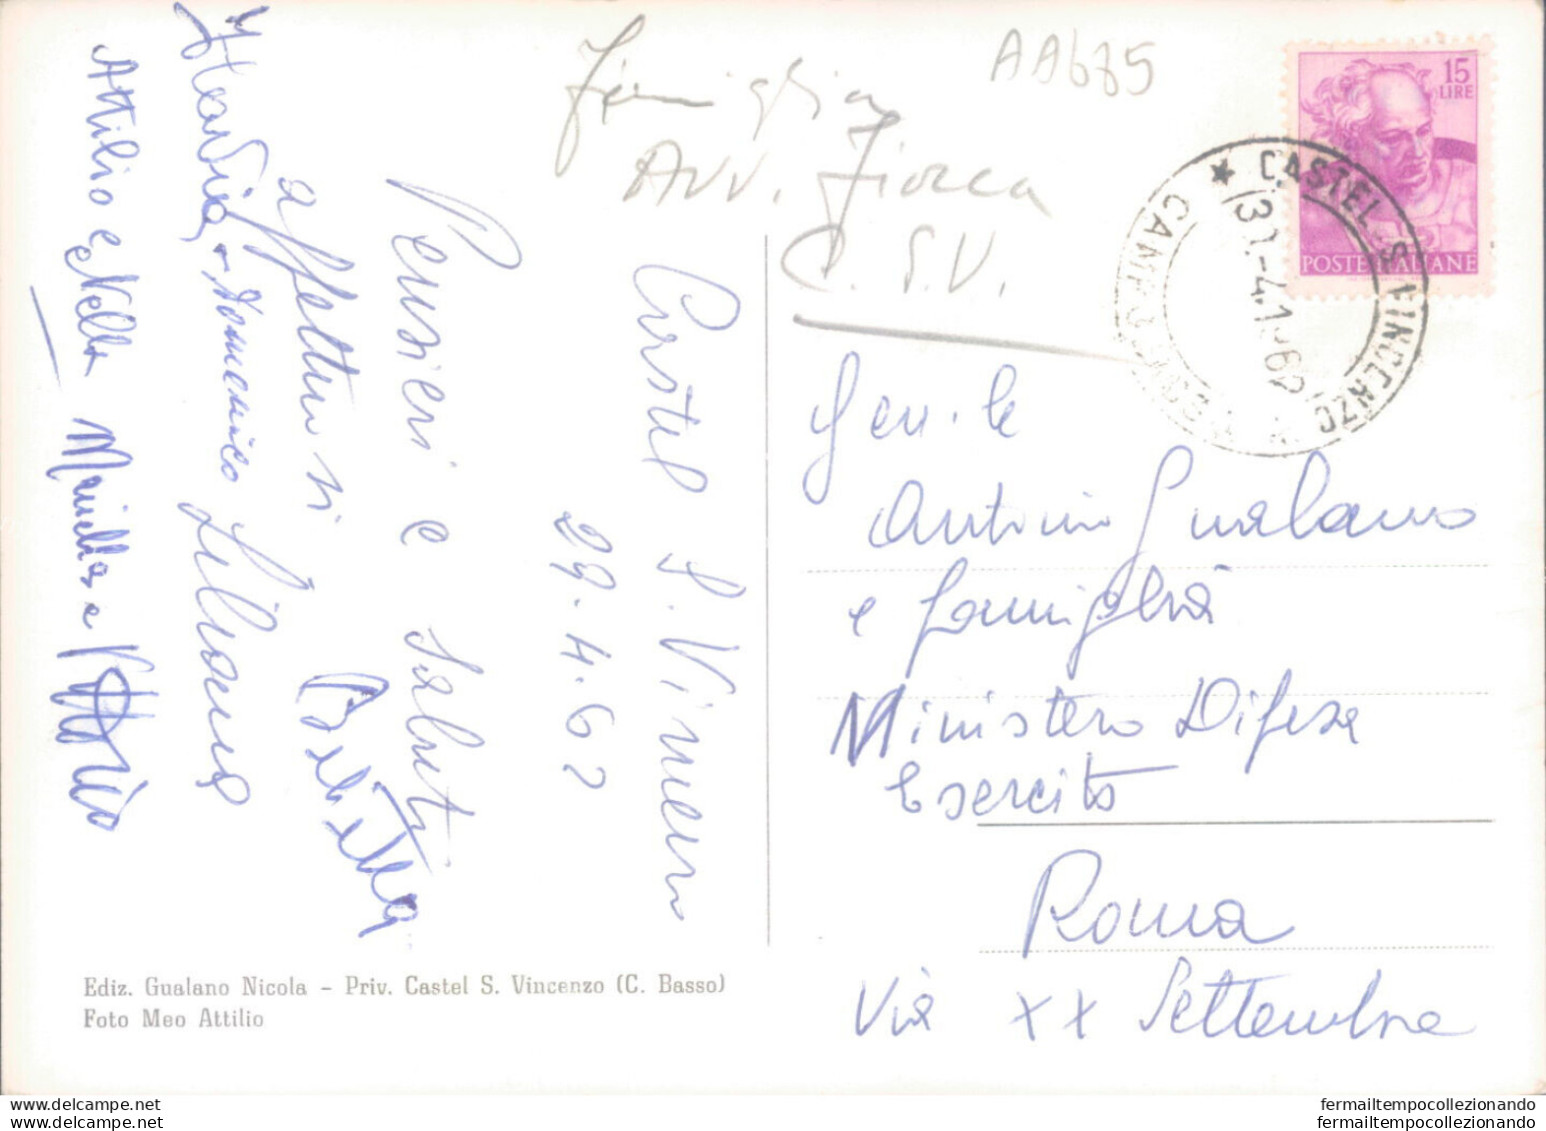 AA685
Famiglia
Avv. Fiocca
C. S.V.
15
LIRE
POSTE ITALIANE
CASTEL S. VINCENZO
30.-4.1962
Castel S. Vincenzo
29.4.62
Pensieri e saluti
affettuosi
Belietta
Domenico Liliana
Attilio e Nella Mariella e Vittorio
Gen.le
Antonio Gualano
e famiglia
Ministero Difesa
Esercito
Roma
Via XX Settembre
Ediz. Gualano Nicola - Priv. Castel S. Vincenzo (C. Basso)
Foto Meo Attilio
fermailtempocollezionando
fermailtempocollezionando
fermailtempocollezionando
fermailtempocollezionando